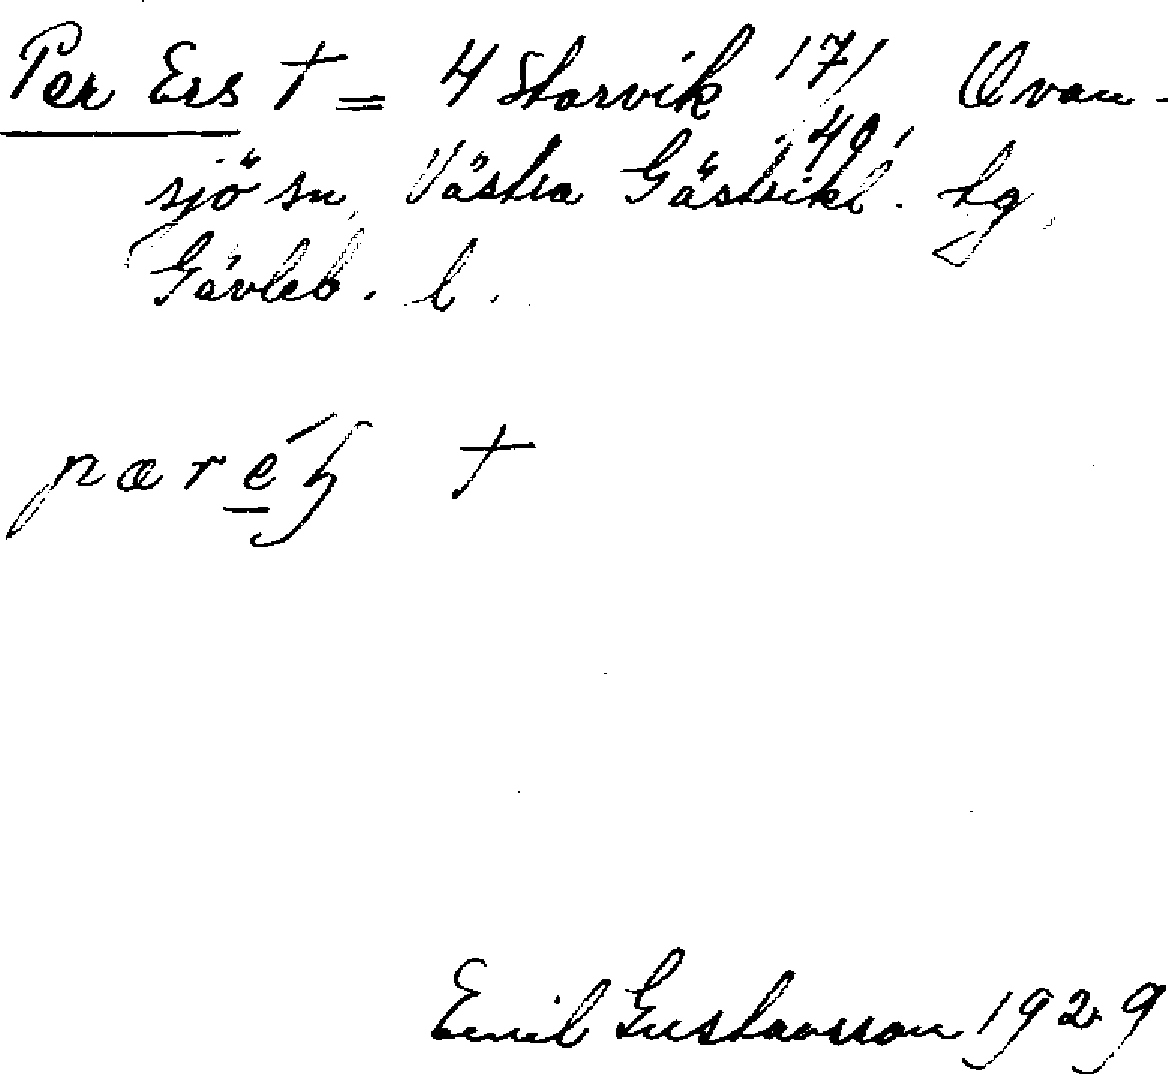 Per Ers † = 4 Storvik 17/ Ovan-
sjö sn, Västra Gästrikl. tg. 49!
Gävleb. l.
pær
†
Emil Gustavsson 1929